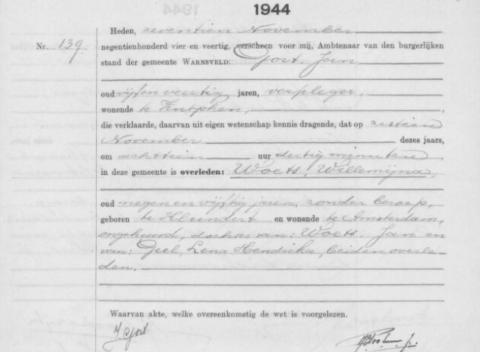 1944
Heden, zeventien November
Nr. 139. negentienhonderd vier en veertig, verscheen voor mij, Ambtenaar van den burgerlijken
stand der gemeente WARNSVELD: Jan
oud vijf en veertig jaren, verpleger,
wonende te Zutphen,
die verklaarde, daarvan uit eigen wetenschap kennis dragende, dat op zestien
November dezes jaars,
om achttien uur dertig minuten
in deze gemeente is overleden: Woets, Willemijna,
oud negen en vijftig jaren, zonder beroep,
geboren te en wonende te Amsterdam,
ongehuwd, dochter van: Woets, Jan en
van: Lena Hendrika, beiden overle-
den.
Waarvan akte, welke overeenkomstig de wet is voorgelezen.